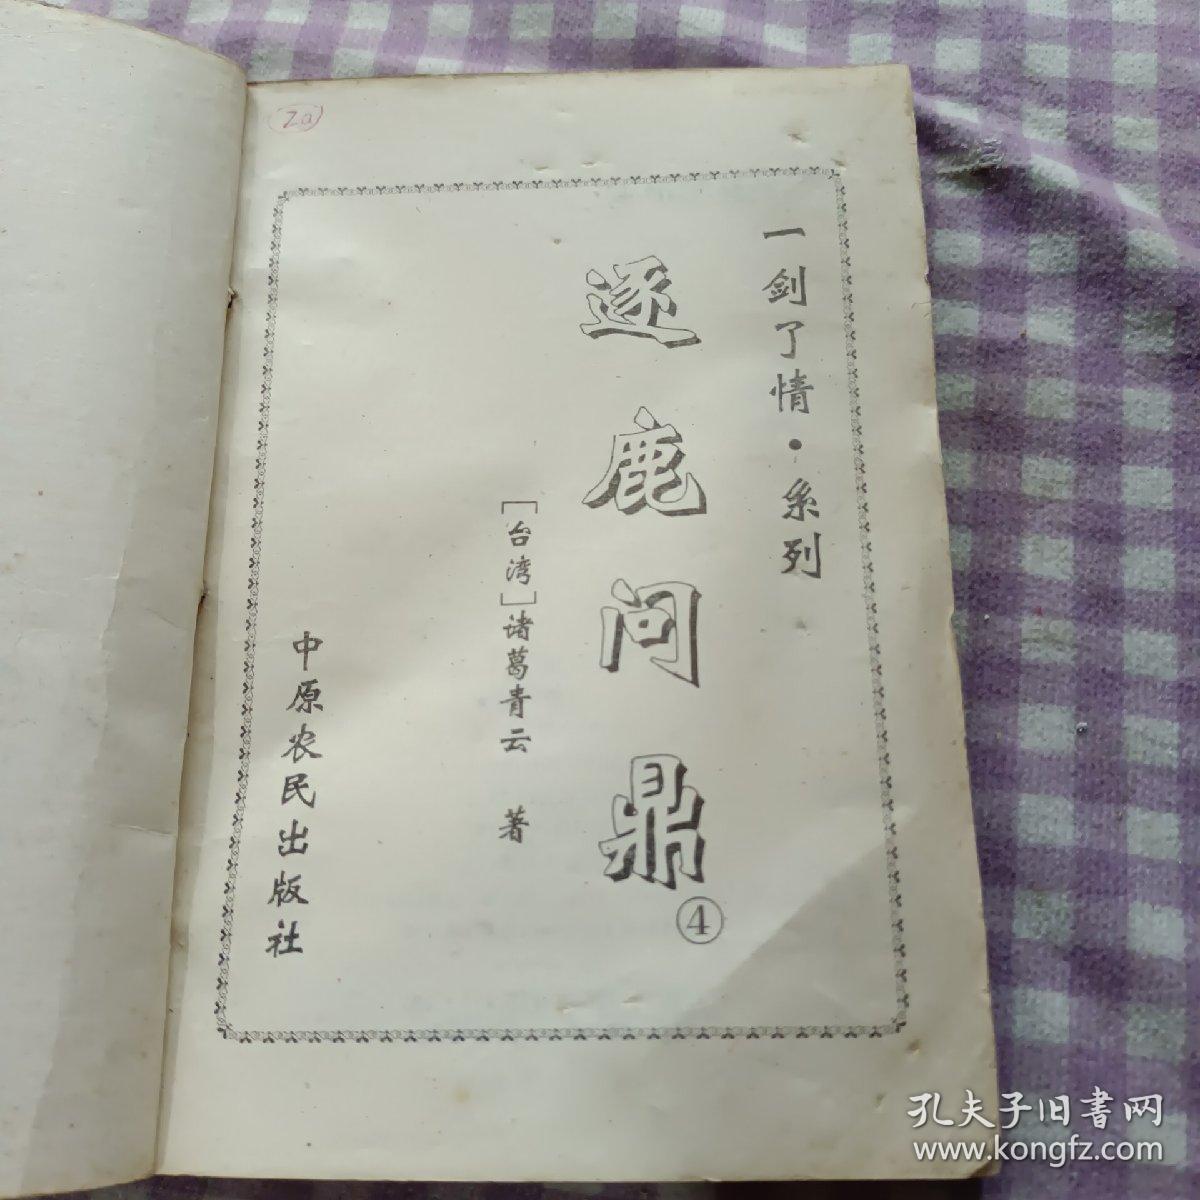 Za
一剑了情·系列
逐鹿问鼎④
[台湾]诸葛青云 著
中原农民出版社
孔夫子旧书网
www.kongfz.com